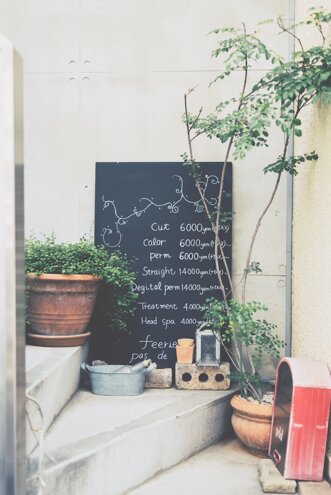 Cut 6000yen
Color 6000yen
Perm 6000yen
Straight 14000yen
Degital perm 14000yen
Treatment 4000
Head spa 4000
feerie
pas de